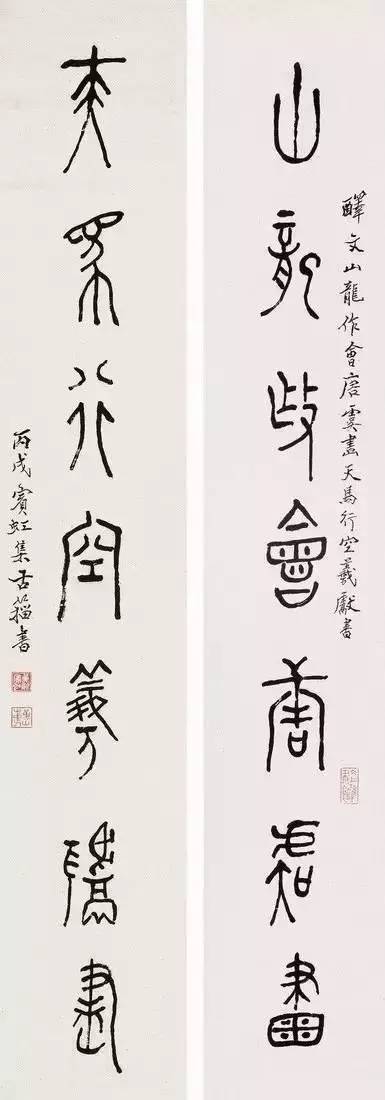 山龍作會唐虞畫
醳文山龍作會唐虞畫天馬行空羲獻書
天馬行空羲獻書
丙戌賓虹集古籀書